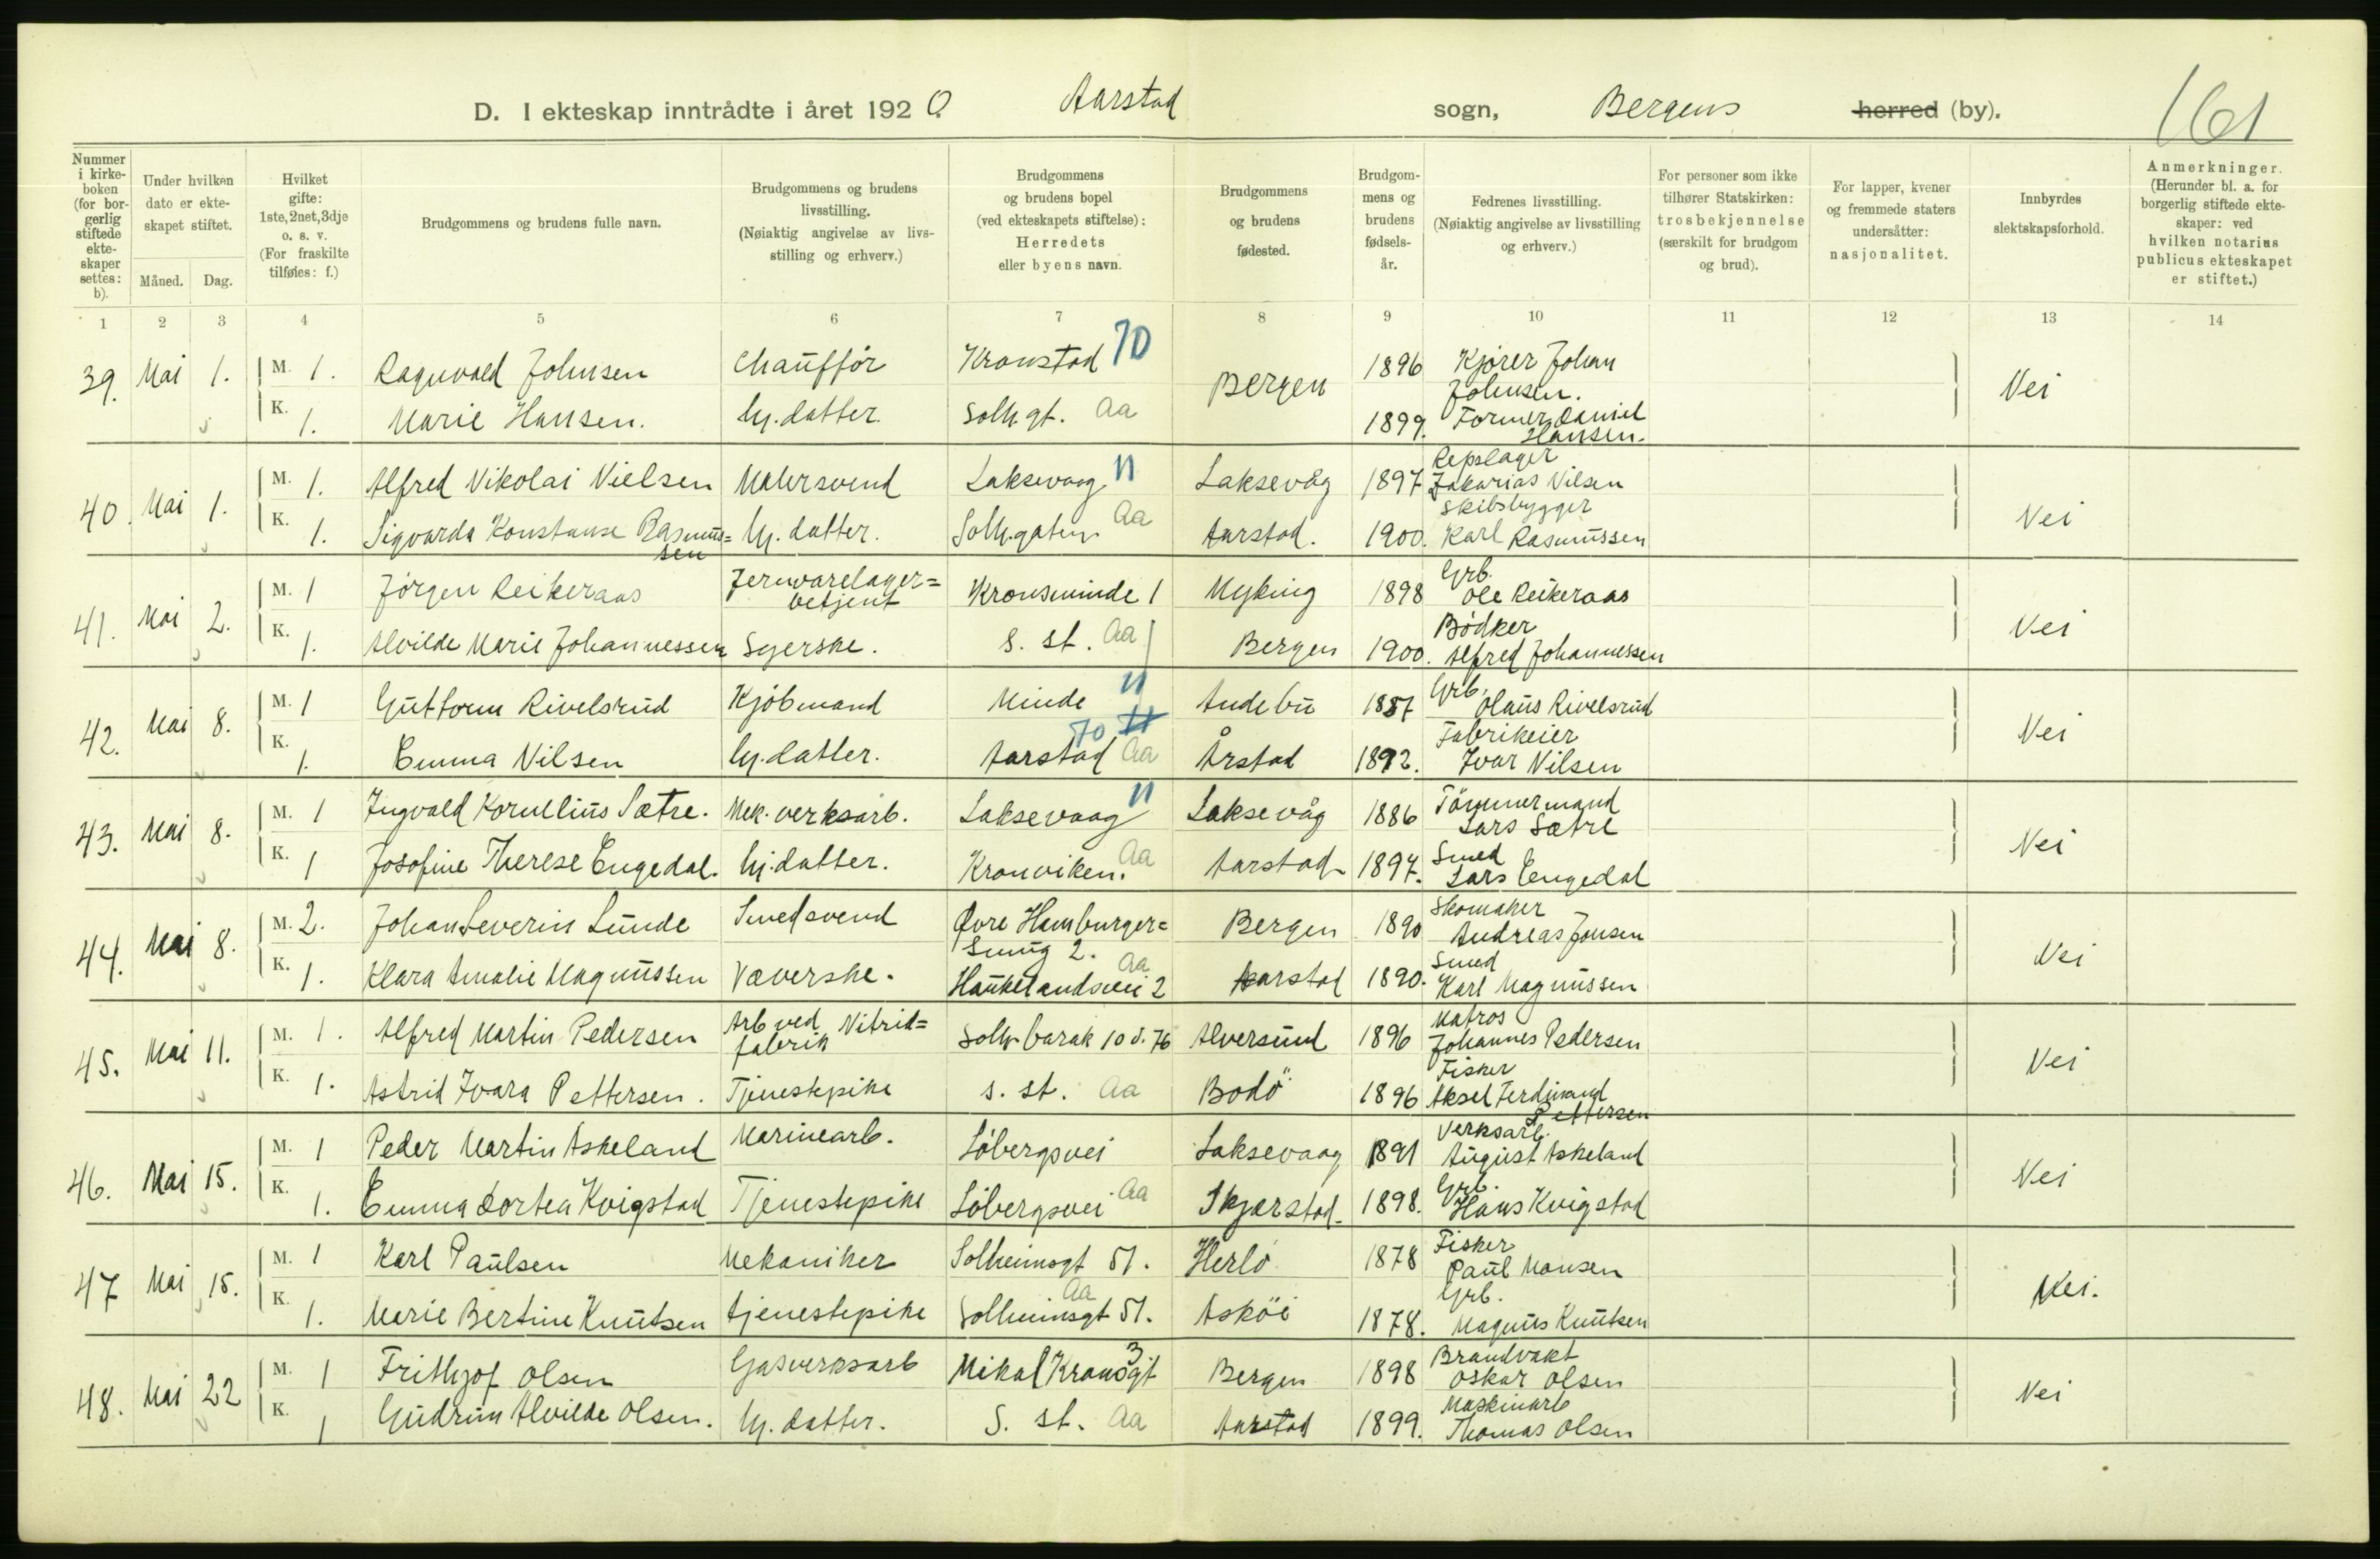 D. I ekteskap inntrådte i året 1920. Aarstad sogn, Bergens herred (by). 161
Nummer i kirkeboken (for borgerlig stiftede ekteskaper settes: b).
Under hvilken dato er ekteskapet stiftet.
Måned. Dag.
Hvilket gifte: 1ste, 2net, 3dje o. s. v. (For fraskilte tilføies: f.)
Brudgommens og brudens fulle navn.
Brudgommens og brudens livsstilling. (Nøiaktig angivelse av livsstilling og erhverv.)
Brudgommens og brudens bopel (ved ekteskapets stiftelse): Herredets eller byens navn.
Brudgommens og brudens fødested.
Brudgommens og brudens fødselsår.
Fedrenes livsstilling. (Nøiaktig angivelse av livsstilling og erhverv.)
For personer som ikke tilhører Statskirken: trosbekjennelse (særskilt for brudgom og brud).
For lapper, kvener og fremmede staters undersåtter: nasjonalitet.
Innbyrdes slektskapsforhold.
Anmerkninger. (Herunder bl. a. for borgerlig stiftede ekteskaper: ved hvilken notarius publicus ekteskapet er stiftet.)
1 2 3 4 5 6 7 8 9 10 11 12 13 14
39. Mai 1. M. 1. Ragnvald Johnsen Chauffør Kronstad 70 Bergen 1896 Kjører Johan Johnsen. Nei
K. 1. Marie Hansen. hj. datter. Solh. gt. Aa 1899. Former Daniel Hansen.
40. Mai 1. M. 1. Alfred Nikolai Nielsen Malersvend Laksevaag 11 Laksevåg 1897 Repslager Zakarias Nilsen Nei
K. 1. Sigvarda Konstanse Rasmus=sen hj. datter. Solh. gaten Aa Aarstad. 1900. Skibsbygger Karl Rasmussen
41. Mai 2. M. 1 Jørgen Reikeraas Jernvarelager=betjent Kronsminde 1 Myking 1898 Grb. Ole Reikeraas Nei
K. 1. Alvilde Marie Johannessen Syerske. s. st. Aa Bergen 1900. Bødker Alfred Johannessen
42. Mai 8. M. 1 Guttorm Rivelsrud Kjøbmand Minde 11 Andebu 1887 Grb. Olaus Rivelsrud Nei
K. 1. Emma Nilsen hj. datter. Aarstad 70 Aa Årstad 1892. Fabrikeier Ivar Nilsen
43. Mai 8. M. 1 Ingvald Kornelius Sætre. Mek. verksarb. Laksevaag 11 Laksevåg 1886 Tømmermand Lars Sætre Nei
K. 1 Josofine Therese Engedal. hj. datter. Kronviken. Aa Aarstad 1897. Smed Lars Engedal
44. Mai 8. M. 2. Johan Severin Lunde Smedsvend Øvre Hamburger=smug 2. Bergen 1890 Skomaker Andreas Jonsen Nei
K. 1. Klara Amalie Magnussen Væverske. Haukelandsvei 2 Aa Aarstad 1890. Smed Karl Magnussen
45. Mai 11. M. 1. Alfred Martin Pedersen Arb. ved Nitrid=fabrik Solh. barak 10 d. 76 Alversund 1896 Matros Johannes Pedersen Nei
K. 1. Astrid Ivara Pettersen. Tjenestepike s. st. Aa Bodø 1896 Fisker Aksel Ferdinand Pettersen
46. Mai 15. M. 1 Peder Martin Askeland Marinearb. Løbergsvei Laksevaag 1891 Verksarb. August Askeland Nei
K. 1. Emma Dortea Kvigstad Tjenestepike Løbergsvei Aa Skjærstad 1898. Grb. Hans Kvigstad
47 Mai 15. M. 1 Karl Paulsen Mekaniker Solheimsgt 51. Herlø 1878 Fisker Paul Monsen Nei.
K. 1. Marie Bertine Knutsen tjenestepike Solheimsgt 51. Aa Askøi 1878. Grb. Magnus Knutsen
48. Mai 22 M. 1 Frithjof Olsen Gasverksarb Mikal Kronsgt 3 Bergen 1898 Brandvakt Oskar Olsen Nei
K. 1 Gudrun Alvilde Olsen. hj. datter. S. st. Aa Aarstad 1899. Maskinarb Thomas Olsen